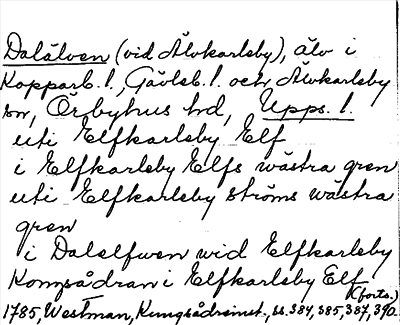 Dalälven (vid Älvkarleby), älv i
Kopparb. l., Gävleb. l. och Älvkarleby
sn, Örbyhus hd, Upps. l.
uti Elfkarleby Elf
i Elfkarleby Elfs wästra gren
uti Elfkarleby ströms wästra
gren
i Dalelfwen wid Elfkarleby
Kongsådran i Elfkarleby Elf
(forts.)
1785, Westman, Kungsådreinst., ss. 384, 385, 387, 390.